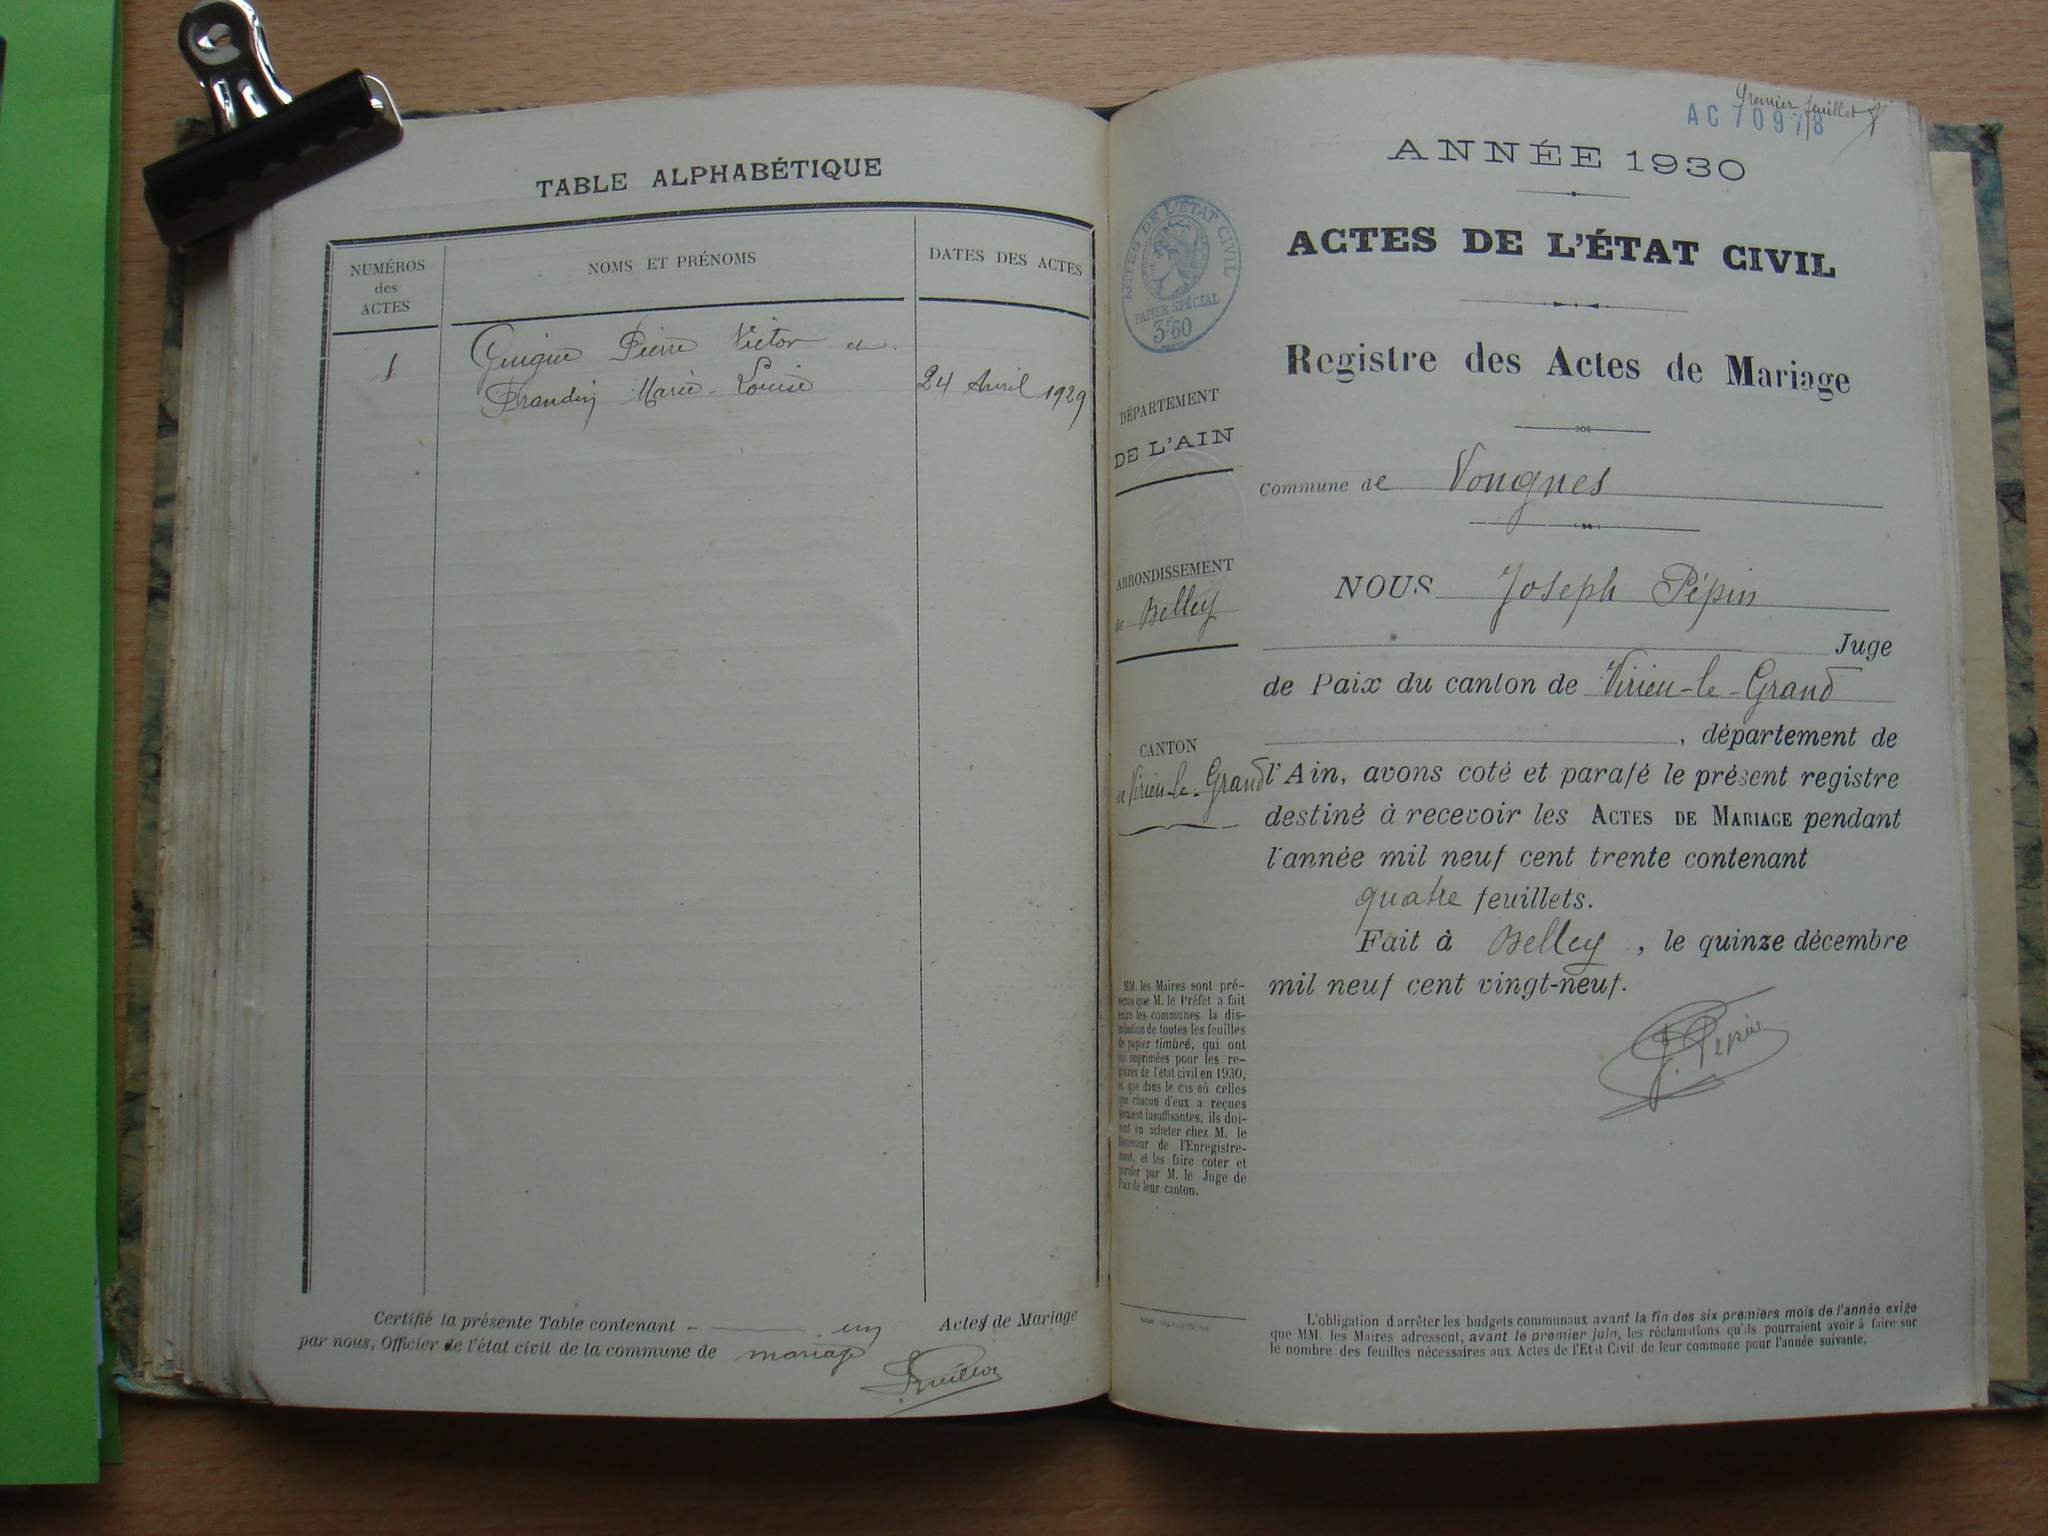 TABLE ALPHABÉTIQUE
NUMÉROS
des
ACTES
NOMS ET PRÉNOMS
DATES DES ACTES
1
Guigue Pierre Victor et
Marie-Louise
24 Avril 1929
Certifié la présente Table contenant un Actes de Mariage
par nous, Officier de l'état civil de la commune de mariage
Premier feuillet
AC 70978
ANNÉE 1930
ACTES DE L'ÉTAT CIVIL
Registre des Actes de Mariage
ACTES DE L'ÉTAT CIVIL
PAPIER SPÉCIAL
3F60
DÉPARTEMENT
DE L'AIN
Commune de Vongnes
ARRONDISSEMENT
de Belley
CANTON
de Virieu-le-Grand
NOUS Joseph Pépin
Juge
de Paix du canton de Virieu-le-Grand
, département de
l'Ain, avons coté et parafé le présent registre
destiné à recevoir les ACTES DE MARIAGE pendant
l'année mil neuf cent trente contenant
quatre feuillets.
Fait à Belley, le quinze décembre
mil neuf cent vingt-neuf.
J. Pépin
MM. les Maires sont pré-
venus que M. le Préfet a fait
entre les communes la dis-
tribution de toutes les feuilles
de papier timbré, qui ont
été imprimées pour les re-
gistres de l'état civil en 1930,
et que dans le cas où celles
que chacun d'eux a reçues
seraient insuffisantes, ils doi-
vent en acheter chez M. le
Receveur de l'Enregistre-
ment, et les faire coter et
parafer par M. le Juge de
Paix de leur canton.
L'obligation d'arrêter les budgets communaux avant la fin des six premiers mois de l'année exige
que MM. les Maires adressent, avant le premier juin, les réclamations qu'ils pourraient avoir à faire sur
le nombre des feuilles nécessaires aux Actes de l'Etat Civil de leur commune pour l'année suivante.